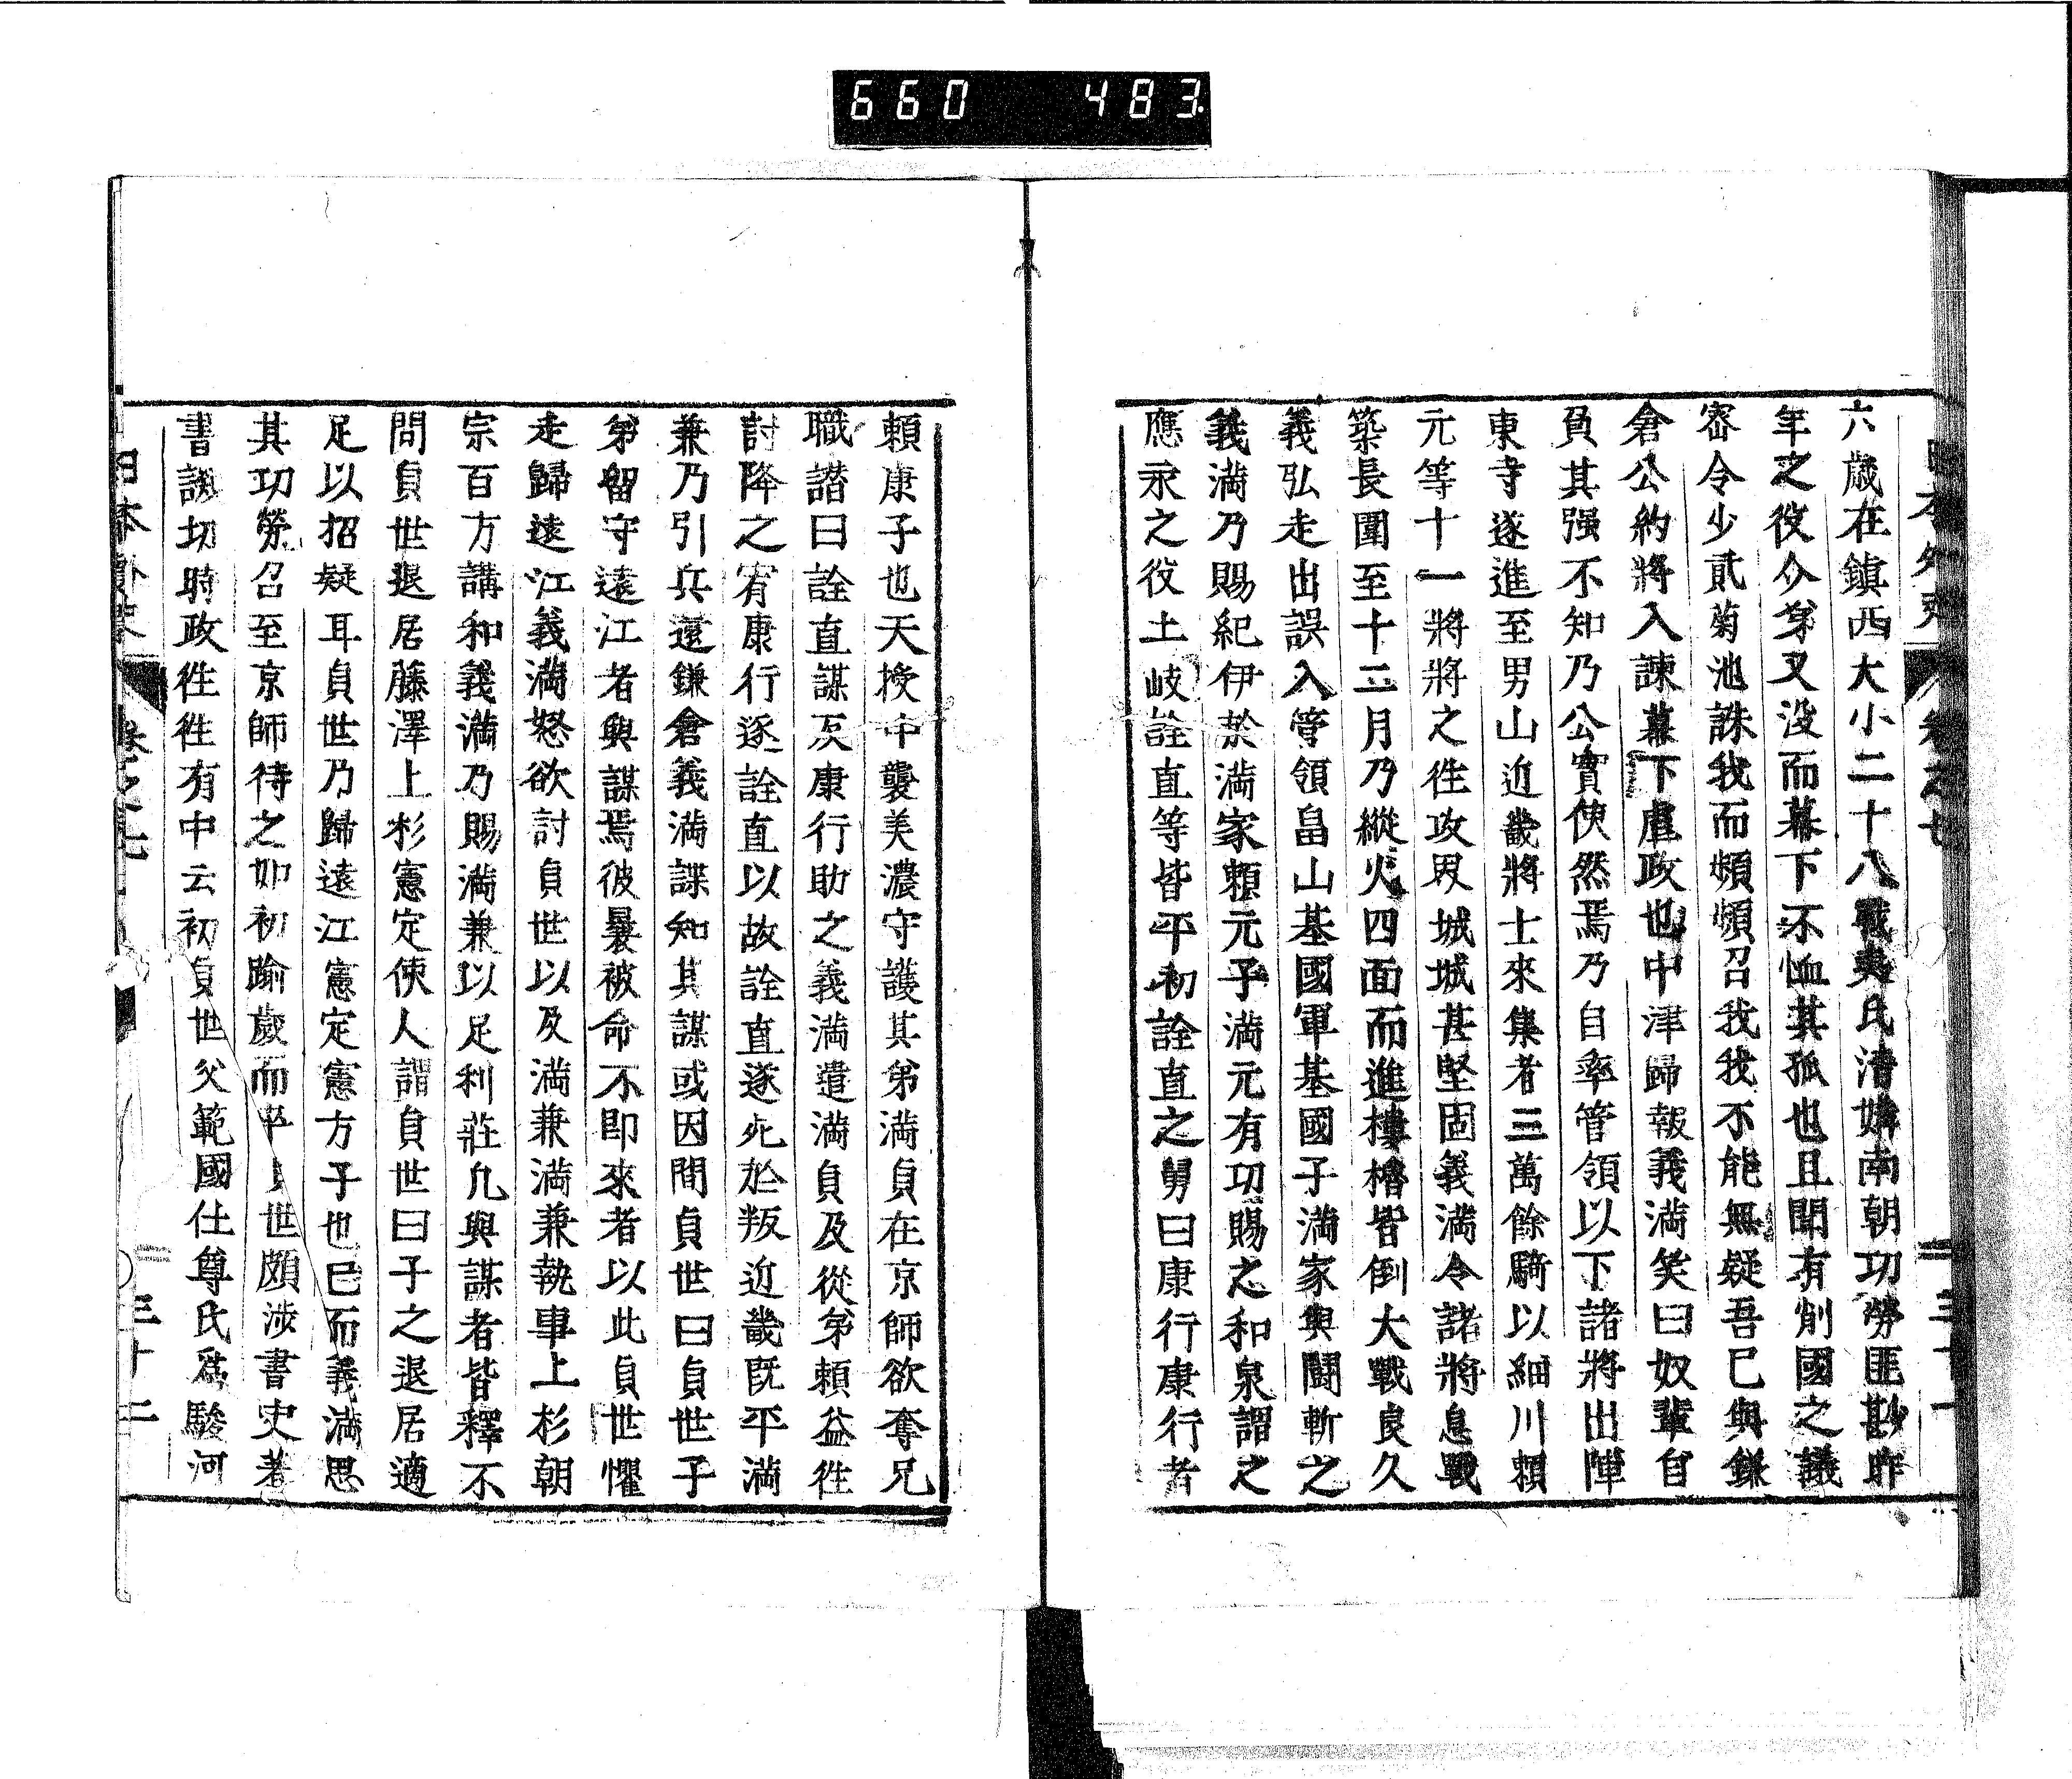 660 483
六歲在鎮西大小二十八戰夷氏清媾南朝功勞匪尠昨
年之役介弟又没而幕下不恤其孤也且聞有削國之議
密令少貳菊池誅我而頻頻召我我不能無疑吾已與鎌
倉公約將入諫幕下虐政也中津歸報義滿笑曰奴輩自
負其强不知乃公實使然焉乃自率管領以下諸將出陣
東寺遂進至男山近畿將士來集者三萬餘騎以細川賴
元等十一將將之徃攻界城城甚堅固義滿令諸將息戰
築長圍至十二月乃縱火四面而進樓櫓皆倒大戰良久
義弘走出誤入管領畠山基國軍基國子滿家與鬭斬之
義滿乃賜紀伊於滿家賴元子滿元有功賜之和泉謂之
應永之役土岐詮直等皆平初詮直之舅曰康行康行者
賴康子也天授中襲美濃守護其弟滿貞在京師欲奪兄
職譖曰詮直謀反康行助之義滿遣滿貞及從弟賴益徃
討降之宥康行逐詮直以故詮直遂死於叛近畿既平滿
兼乃引兵還鎌倉義滿諜知其謀或因間貞世曰貞世子
弟留守遠江者與謀焉彼曩被命不即來者以此貞世懼
走歸遠江義滿怒欲討貞世以及滿兼滿兼執事上杉朝
宗百方講和義滿乃賜滿兼以足利莊凡與謀者皆釋不
問貞世退居藤澤上杉憲定使人謂貞世曰子之退居適
足以招疑耳貞世乃歸遠江憲定憲方子也已而義滿思
其功勞召至京師待之如初踰歲而卒貞世頗涉書史著
書譏切時政徃徃有中云初貞世父範國仕尊氏爲駿河
日本外史 卷之七 三十二